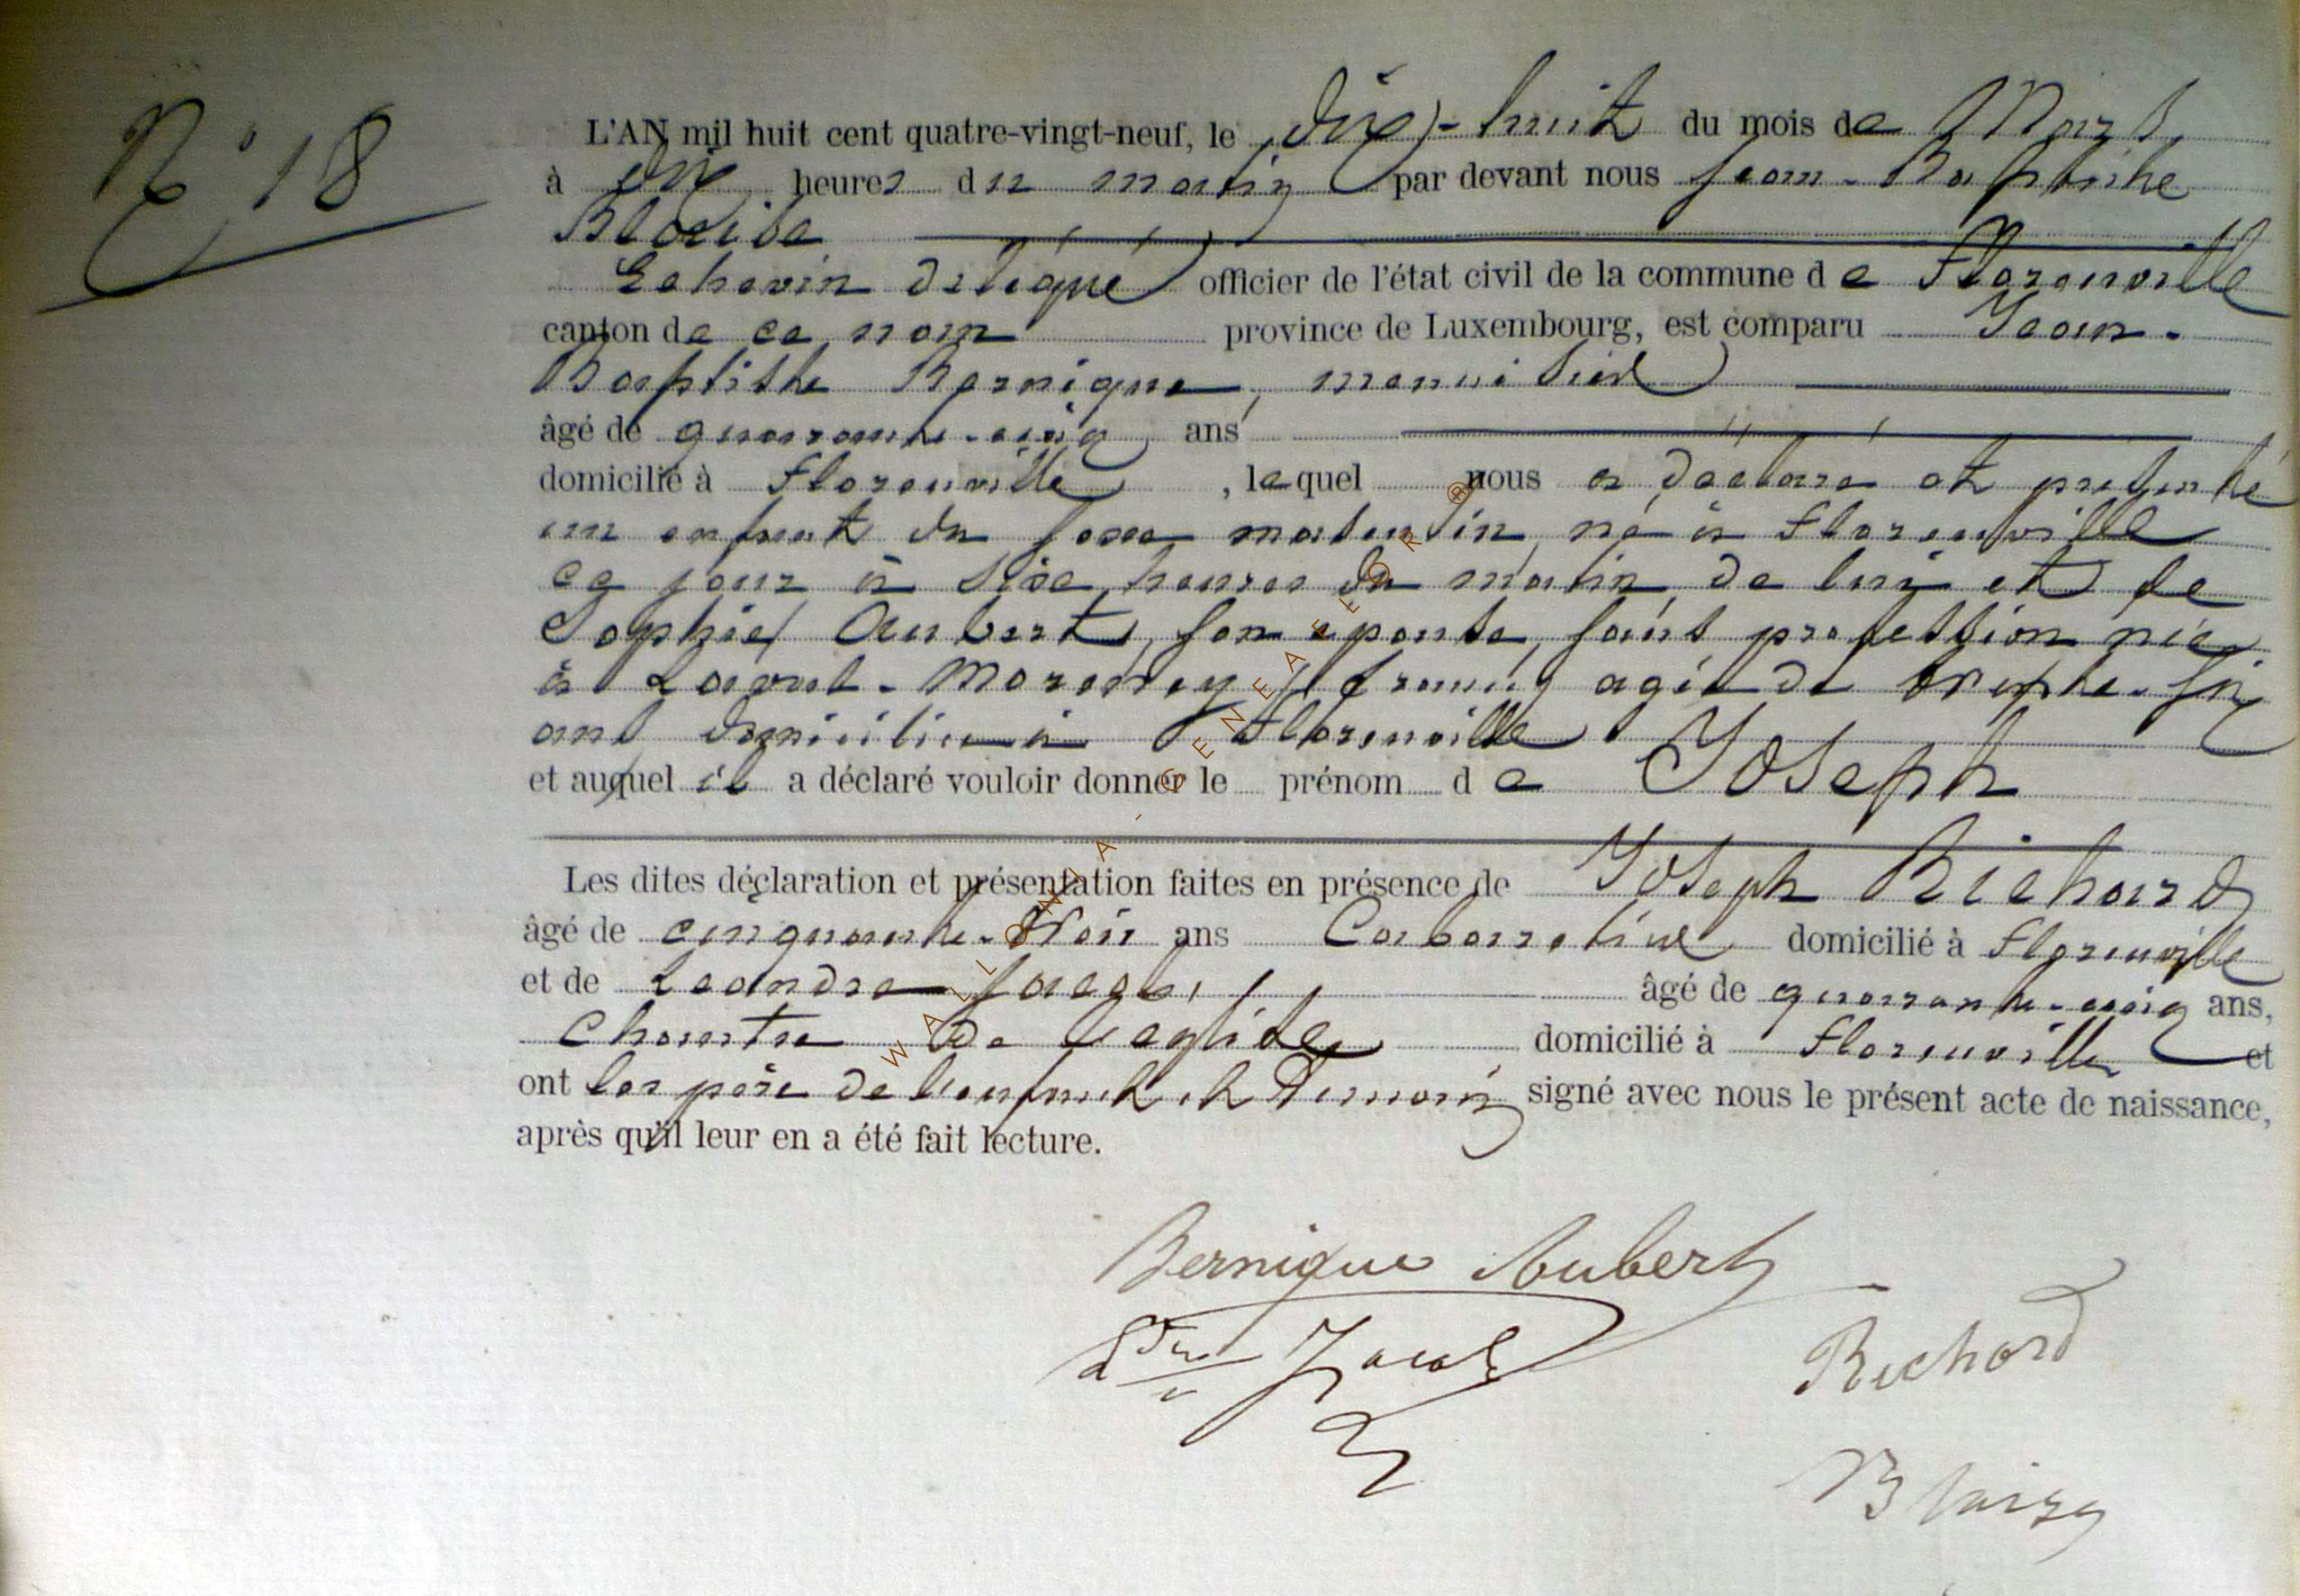 N° 18
L'AN mil huit cent quatre-vingt-neuf, le dix-huit du mois de Mars
à dix heures du matin par devant nous Jean-Baptiste
Blaise
Echevin délégué officier de l'état civil de la commune de Florenville
canton de ce nom province de Luxembourg, est comparu Jean-
Baptiste Bernique, menuisier
âgé de quarante-cinq ans
domicilié à Florenville, lequel nous a déclaré et présenté
un enfant du sexe masculin, né à Florenville
ce jour à six heures du matin, de lui et de
Sophie Aubert, son épouse, sans profession née
à Laval-Morency (france) agée de trente-six
ans domiciliée à Florenville
et auquel il a déclaré vouloir donner le prénom de Joseph
Les dites déclaration et présentation faites en présence de Joseph Richard
âgé de cinquante-trois ans Cabaretier domicilié à Florenville
et de Leandre Jacob, âgé de quarante-cinq ans,
Chantre de l'eglise domicilié à Florenville et
ont les père de l'enfant et témoins signé avec nous le présent acte de naissance,
après qu'il leur en a été fait lecture.
Bernique Aubert
Jacob
Richard
Blaise
WALLONIA - GENEALEDR ®